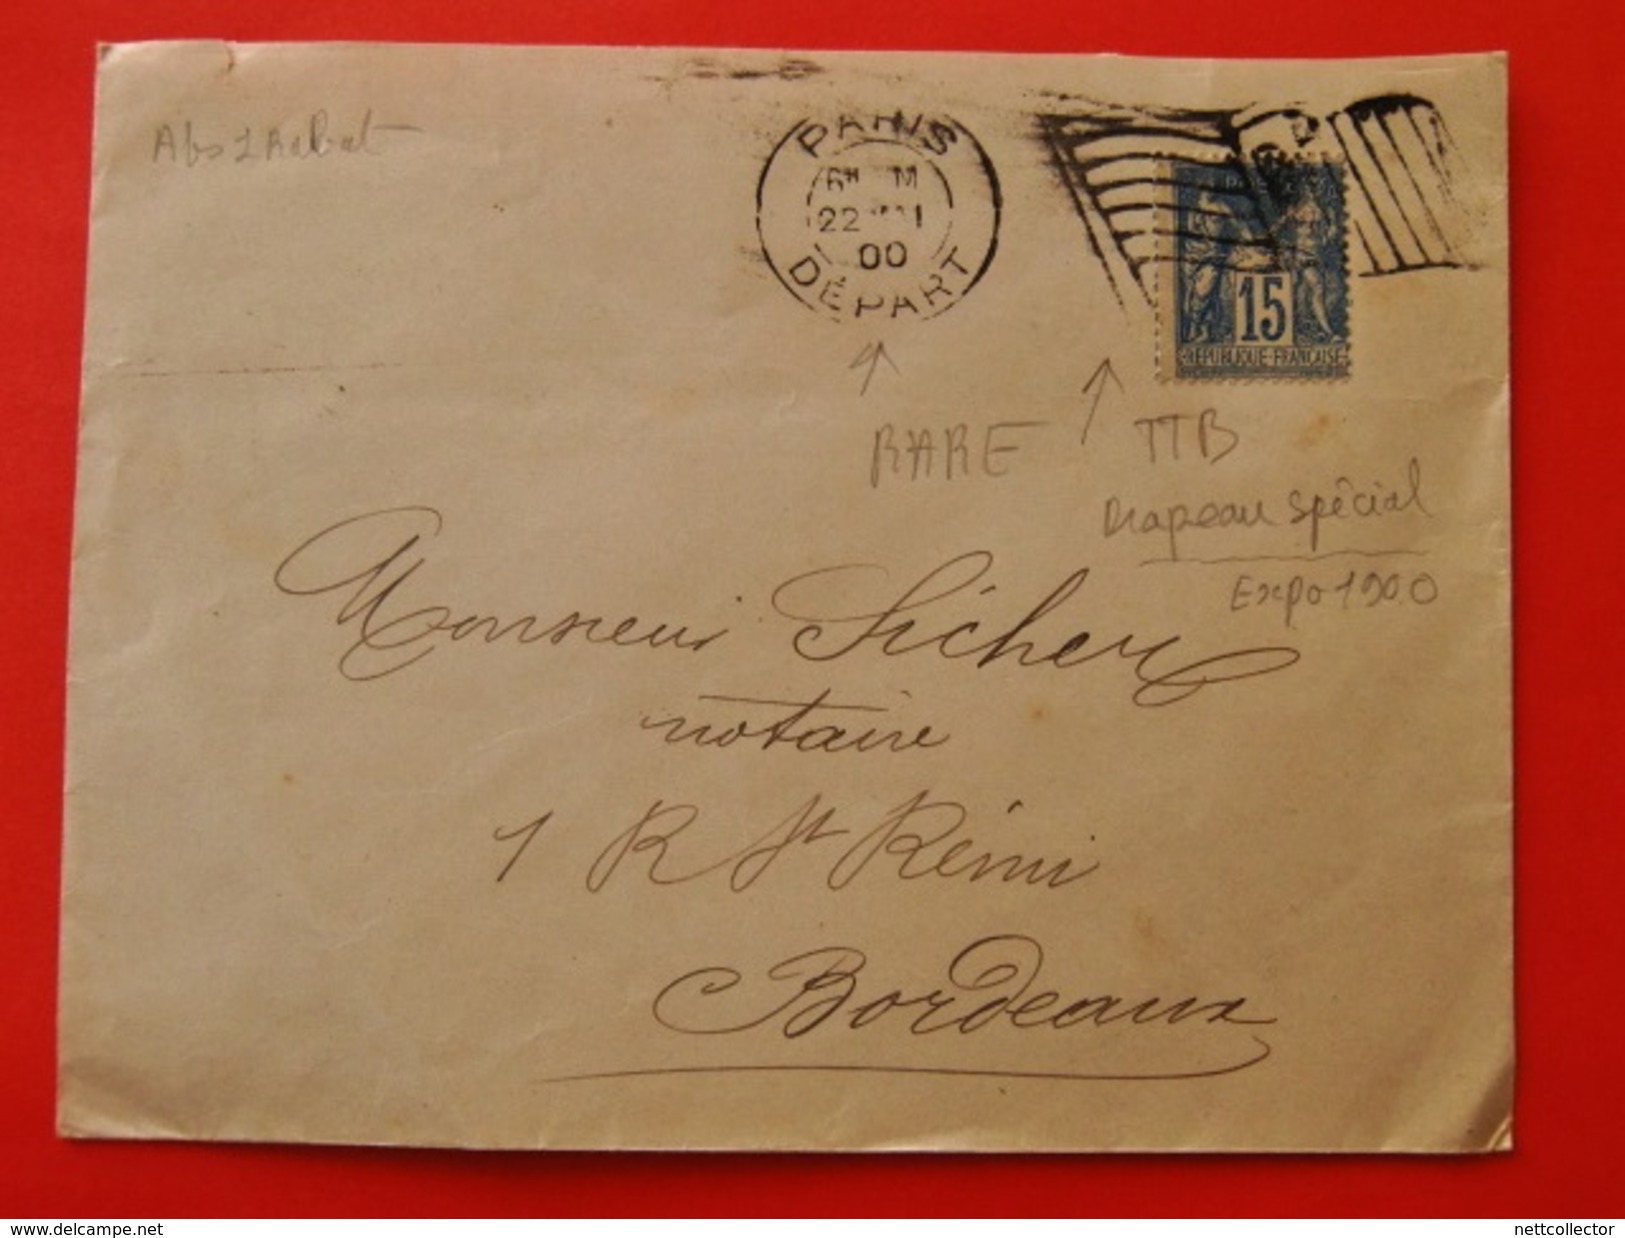 PARIS
22
00
DÉPART
15
RÉPUBLIQUE-FRANÇAISE
RARE
TTB
Drapeau spécial
Expo 1900
Monsieur Sicher
notaire
1 R St Rémi
Bordeaux
www.delcampe.net
nettcollector